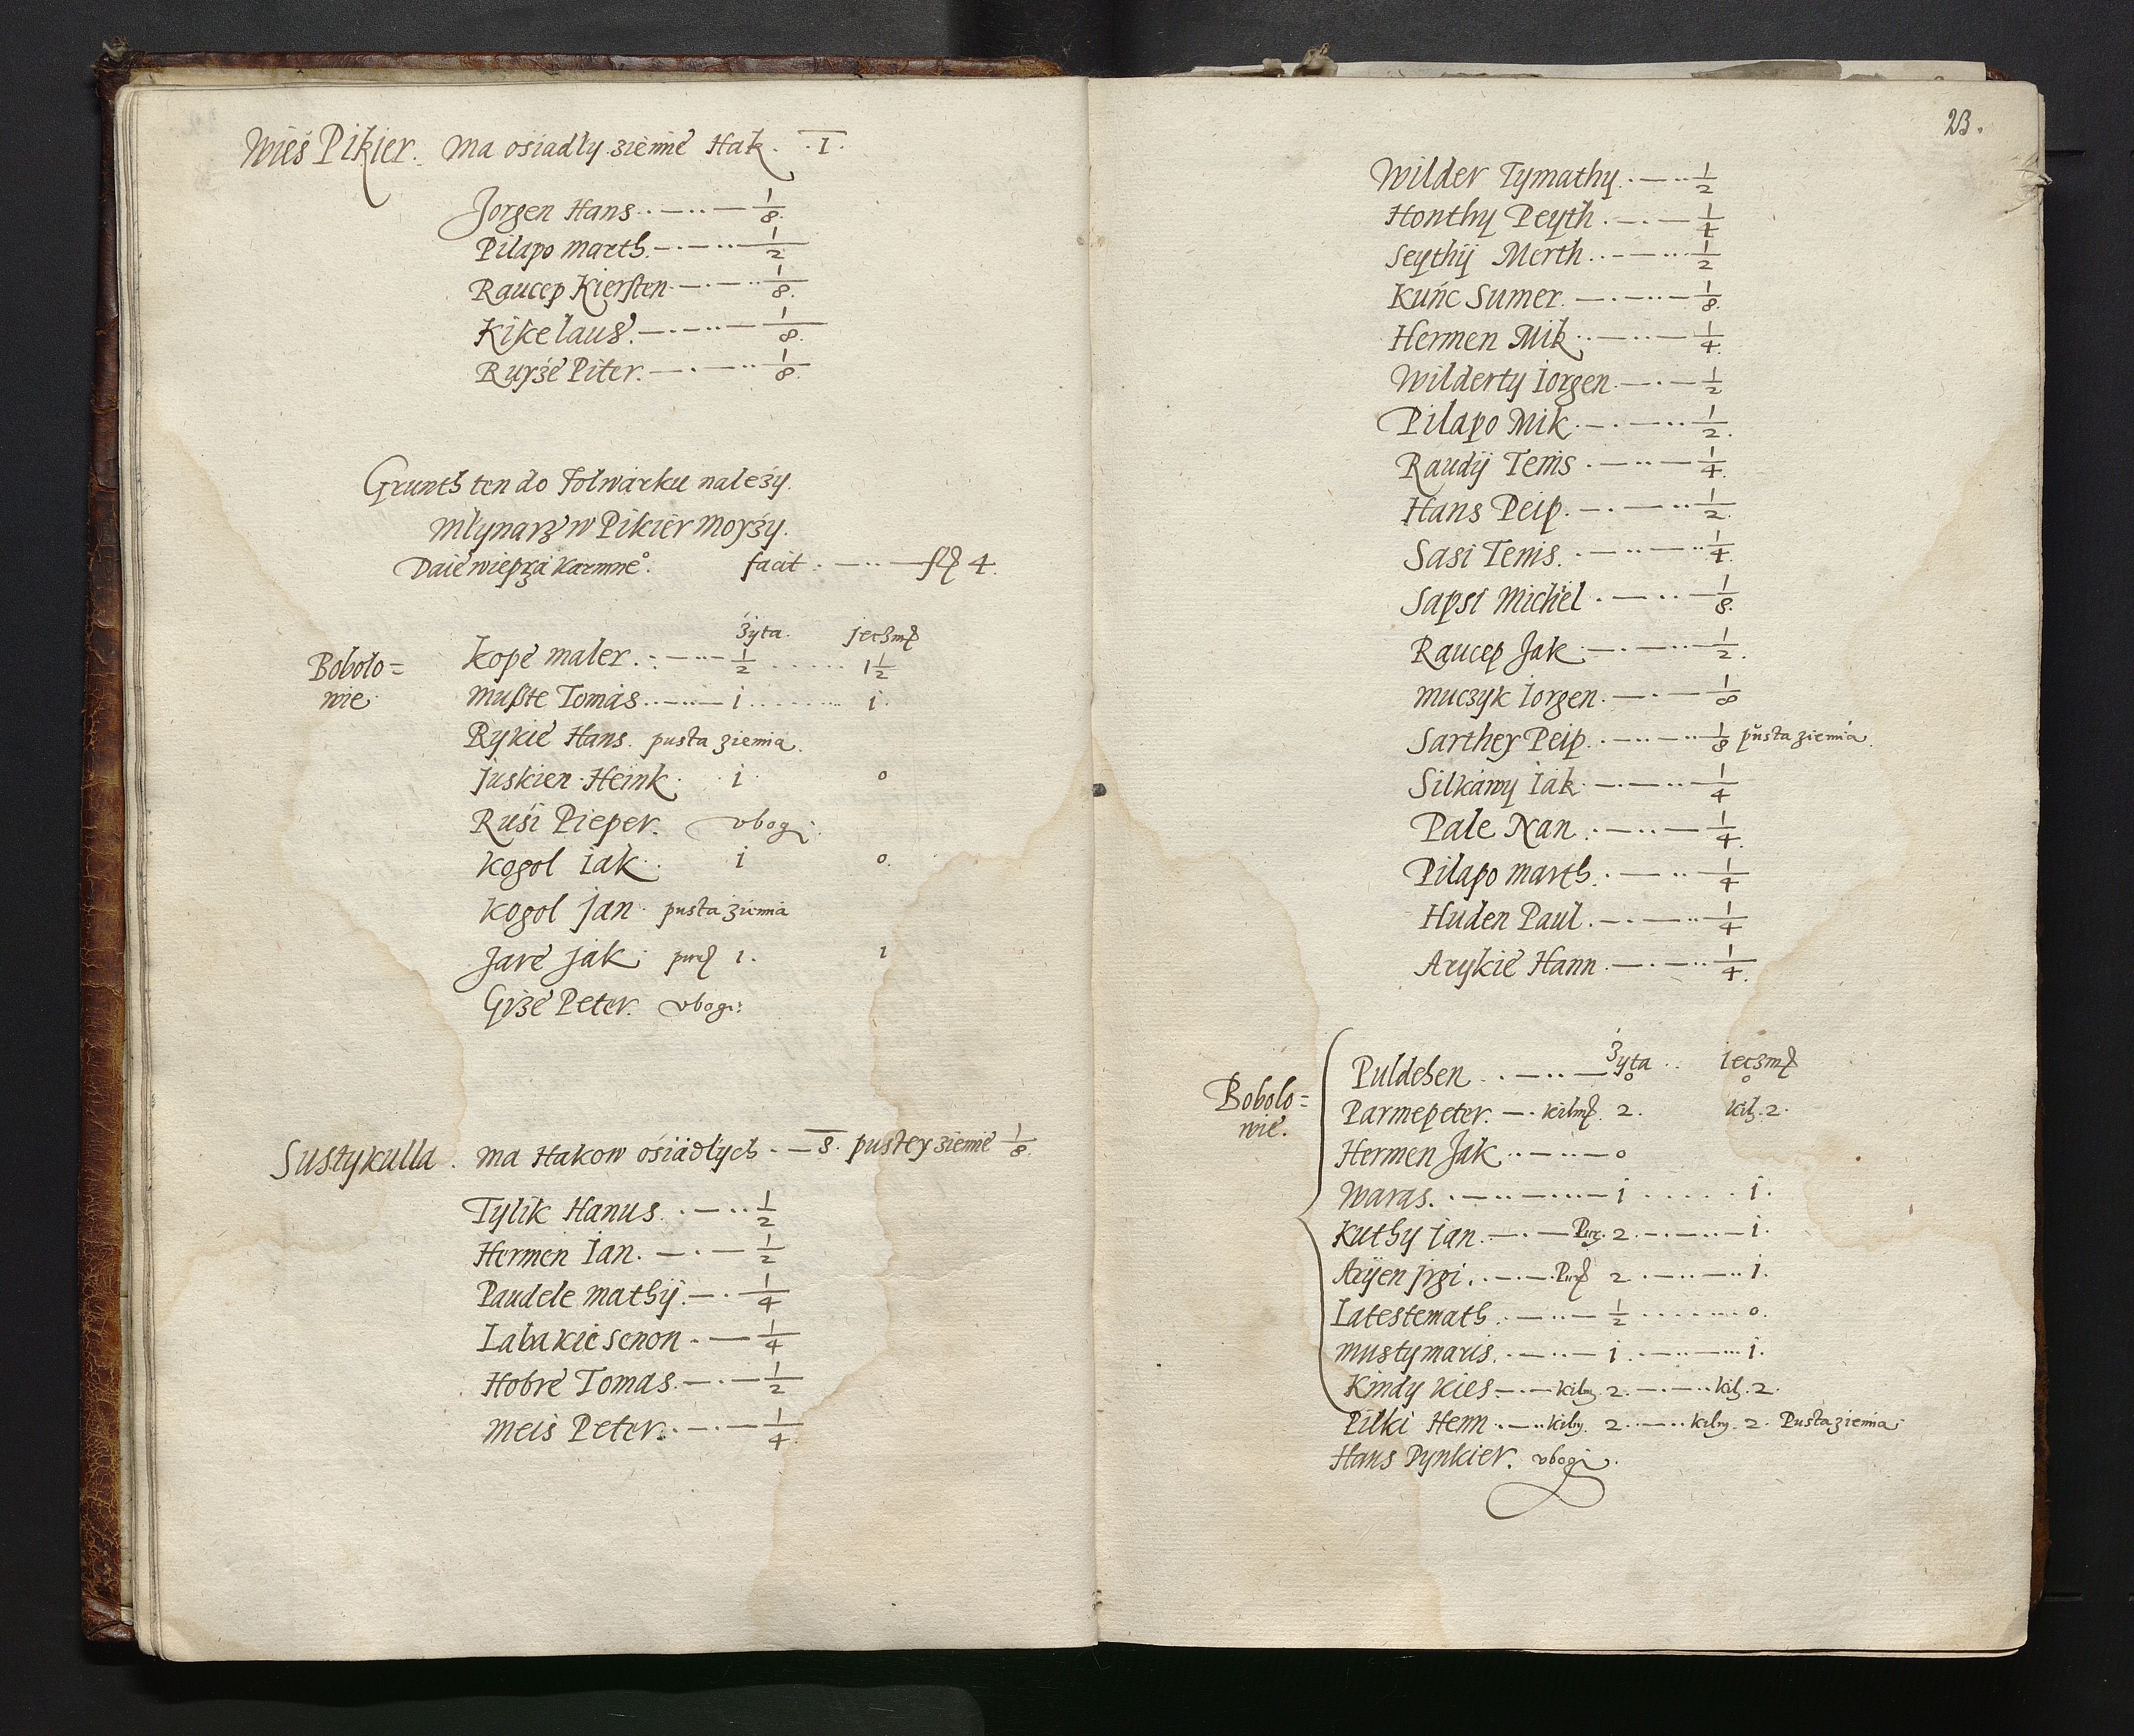 Wieś Pikier. Ma osiadły ziemie Hak. I.
Jorgen Hans 1/8.
Pilapo marth. 1/2
Raucep Kiersten 1/8.
Kikelaus. 1/8.
Ruyżé Piter. 1/8.
Grunth ten do Folwarku należy.
Młynarz w Pikier Moyży.
Daie wieprza karmne°. facit. fl 4.
żyta. jeczm
Bobolo= Kope maler. 1/2 1 1/2
wie. Muste Tomas 1 1.
Rykie Hans. pusta ziemia.
Juskien Heink. 1. 0
Rusi Pieper. vbogi.
Kogol Iak. 1 0.
Kogol Jan pusta ziemia
Jare Jak. pur 1. 1
Grze Peter. vbogi:
Sustykulla. ma Hakow osiadłych. 8. pustey ziemie 1/8.
Tylik Hanus. 1/2
Hermen Ian. 1/2
Paudele mathij. 1/4
Labakie senon. 1/4
Hobre Tomas. 1/2
Meis Peter. 1/4.
23.
Wilder Tymathy. 1/2
Honthy Peyth. 1/4
Seythij Merth. 1/2
Kuńc Sumer. 1/8.
Hermen Mik 1/4.
Wilderty Iorgen 1/2
Pilapo Mik. 1/2.
Raudij Tenis. 1/4.
Hans Peip. 1/2.
Sasi Tenis. 1/4.
Sapsi Michel. 1/8.
Raucep Jak. 1/2.
Muczyk Iorgen. 1/8
Sarthey Peip. 1/8 pusta ziemia.
Silkawy Iak. 1/4
Pale Nan. 1/4.
Pilapo Marth. 1/4
Huden Paul. 1/4
Arykie Hann. 1/4.
żyta. Ieczm
Puldehen. 0 0
Bobolo= Parmepeter. kilm 2. kil. 2.
wie. Hermen Jak 0
Waras. 1 1.
Kuthy Jan. Pur. 2. 1.
Arÿen Jrgi. Pur 2 1.
Latestemath. 1/2 0.
Mustymaris. 1. 1.
Kindy Kies kilm. 2. kil. 2.
Pilki Henn kilm. 2. kilm. 2. Pusta ziemia
Hans Pynkier. vbogi.